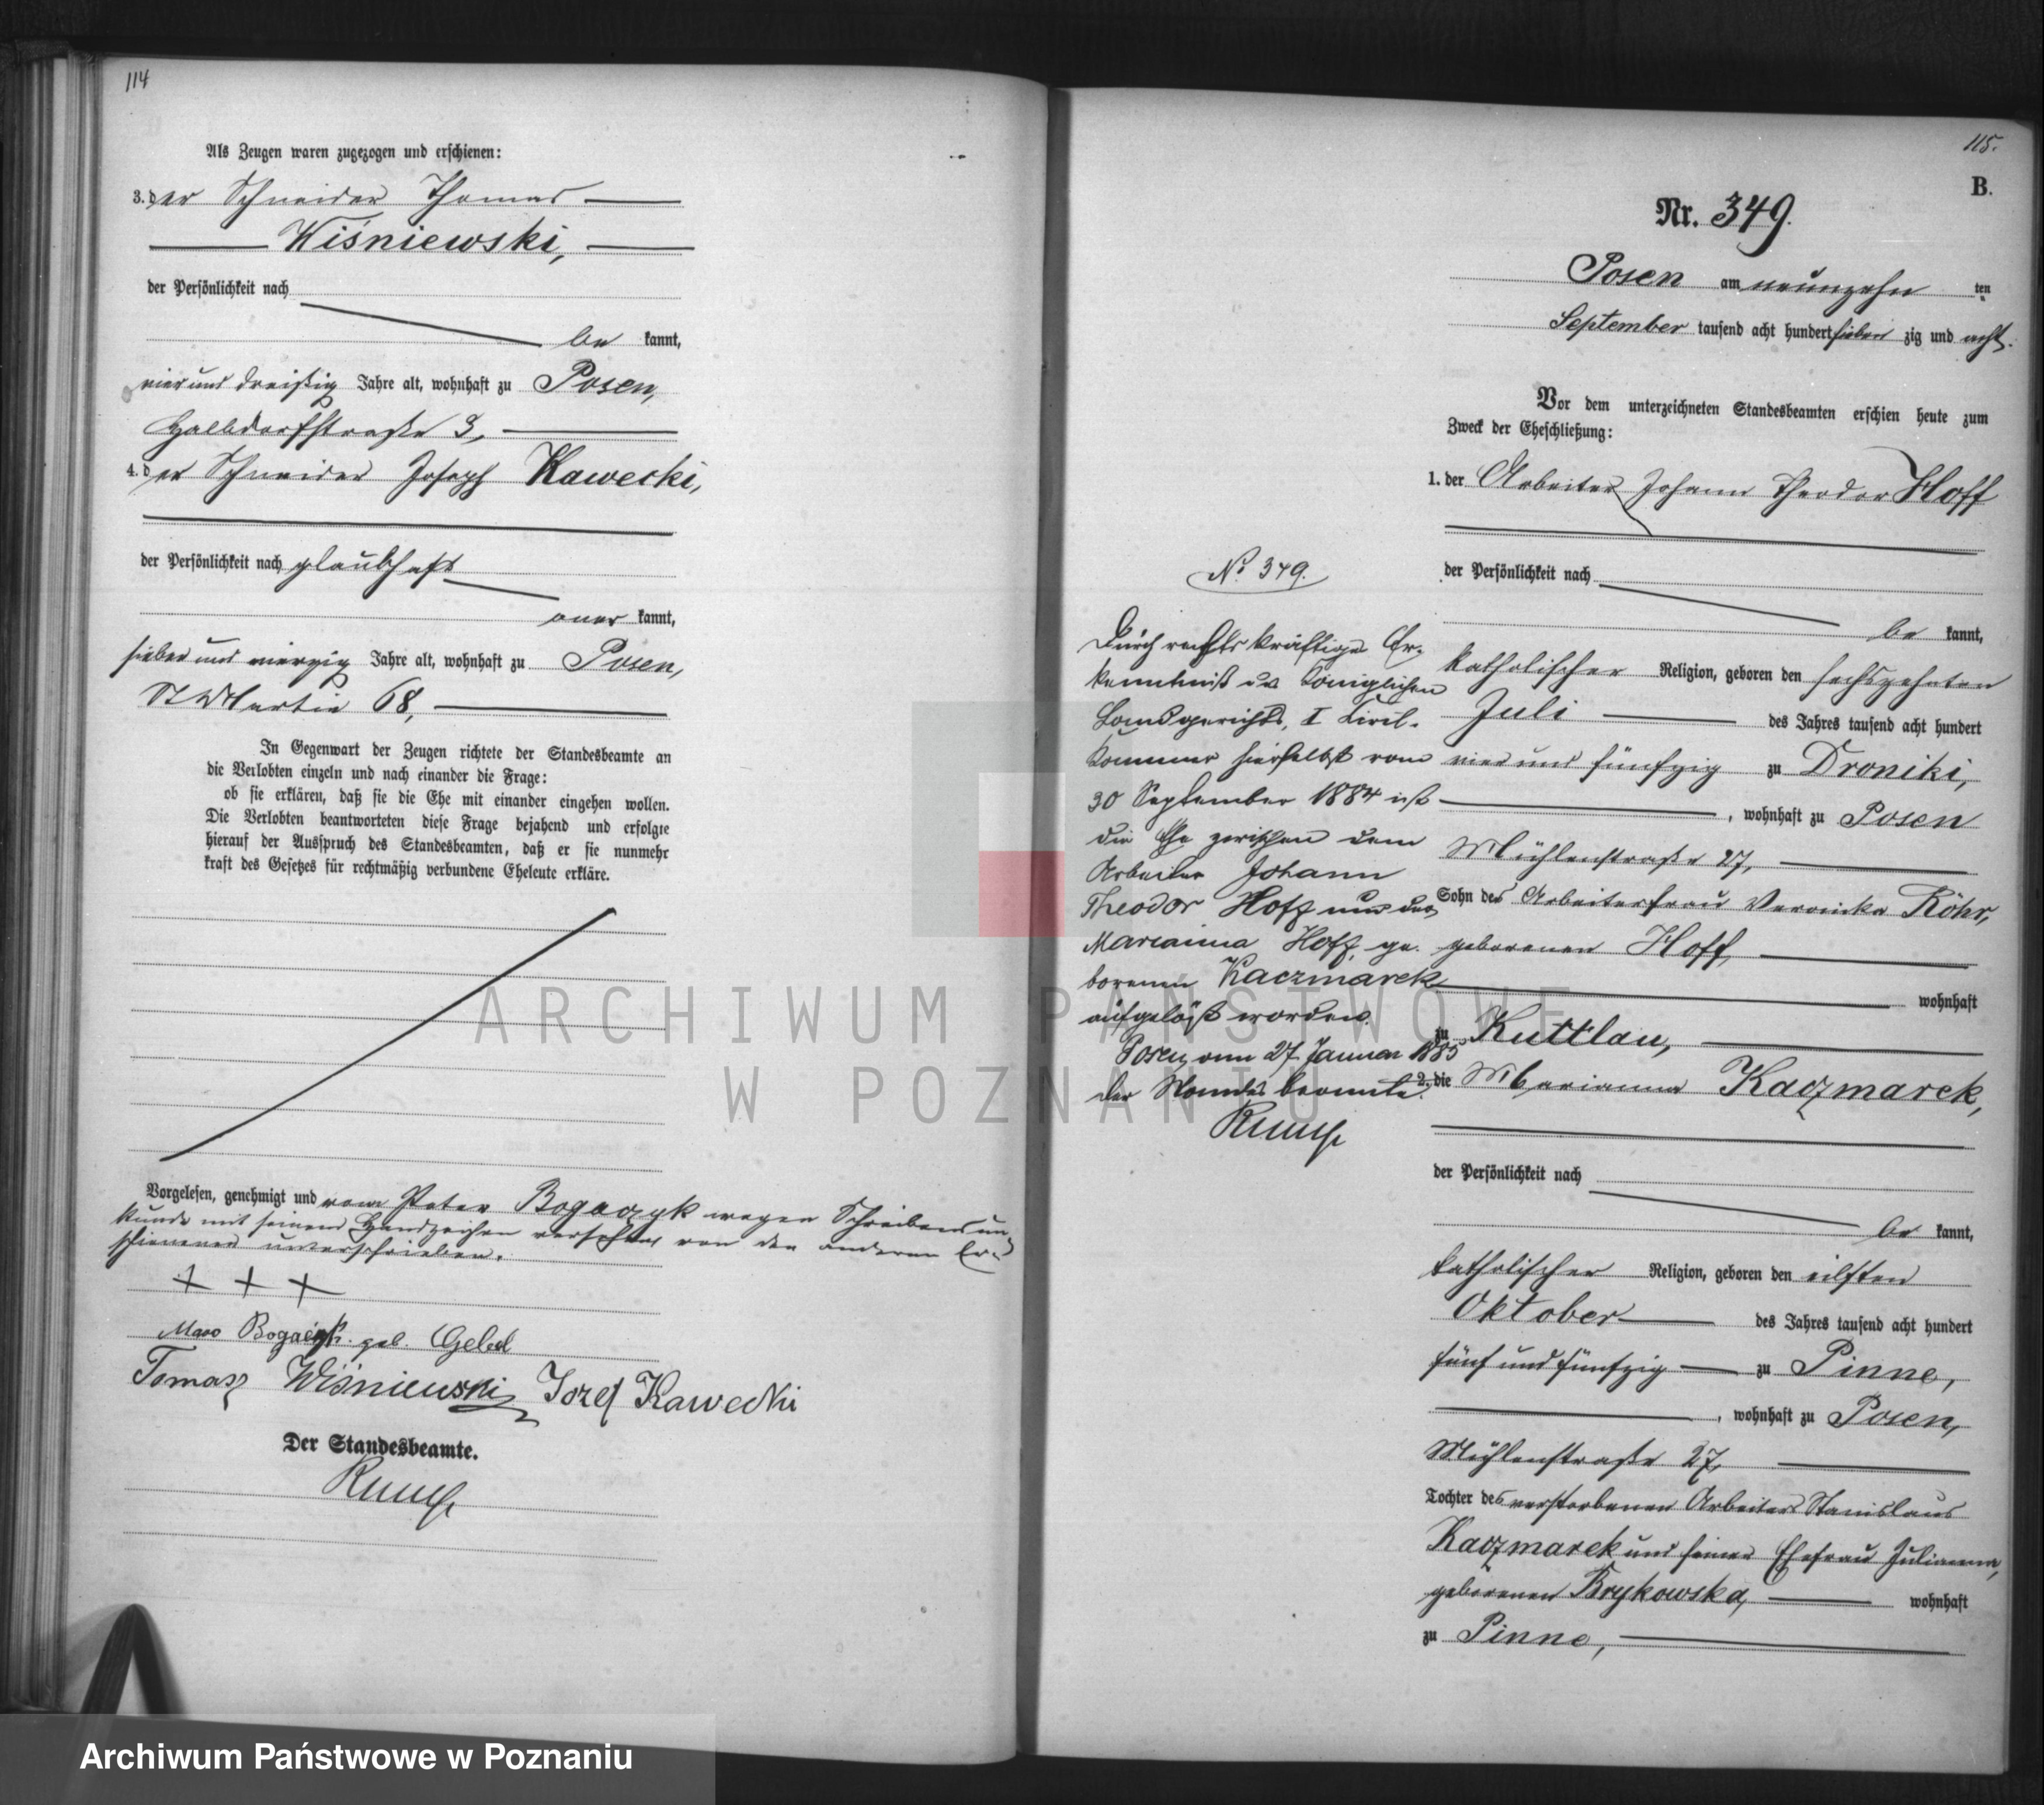 114
Als Zeugen waren zugezogen und erschienen:
3. der Schneider Thomas
Wiśniewski,
der Persönlichkeit nach
be kannt,
vier und dreißig Jahre alt, wohnhaft zu Posen,
Halbdorfstraße 3,
4. der Schneider Joseph Kawecki,
der Persönlichkeit nach glaubhaft
aner kannt,
sieben und vierzig Jahre alt, wohnhaft zu Posen,
St Martin 68,
In Gegenwart der Zeugen richtete der Standesbeamte an
die Verlobten einzeln und nach einander die Frage:
ob sie erklären, daß sie die Ehe mit einander eingehen wollen.
Die Verlobten beantworteten diese Frage bejahend und erfolgte
hierauf der Ausspruch des Standesbeamten, daß er sie nunmehr
kraft des Gesetzes für rechtmäßig verbundene Eheleute erkläre.
Vorgelesen, genehmigt und vom Peter Bogaczyk wegen Schreibensun-
kunde mit seinem Handzeichen versehen von den anderen Er-
schienenen unterschrieben.
+ + +
geb.
Tomasz Wiśniewski Jozef Kawecki
Der Standesbeamte.
115.
B.
Nr. 349.
Posen am neunzehn ten
September tausend acht hundert sieben zig und acht.
Vor dem unterzeichneten Standesbeamten erschien heute zum
Zweck der Eheschließung:
1. der Arbeiter Johann Theodor Hoff
der Persönlichkeit nach
be kannt,
katholischer Religion, geboren den sechszehnten
Juli des Jahres tausend acht hundert
vier und fünfzig zu Droniki,
, wohnhaft zu Posen
Mühlenstraße 27,
Sohn der Arbeiterfrau Veronika Röhr,
geborenen Hoff,
wohnhaft
zu Kuttlau,
2. die Marianna Kaczmarek,
der Persönlichkeit nach
be kannt,
katholischer Religion, geboren den eilften
Oktober des Jahres tausend acht hundert
fünf und fünfzig zu Pinne,
, wohnhaft zu Posen,
Mühlenstraße 27,
Tochter des verstorbenen Arbeiters Stanislaus
Kaczmarek und seiner Ehefrau Julianna,
geborenen Brykowska, wohnhaft
zu Pinne,
No 349.
Durch rechtskräftiges Er-
kenntniß des Königlichen
Landgerichts, I Civil-
kammer hierselbst vom
30 September 1884 ist
die Ehe zwischen dem
Arbeiter Johann
Theodor Hoff und der
Marianna Hoff, ge-
borenen Kaczmarek
aufgelöst worden.
Posen, am 27. Januar 1885
Der Standesbeamte.
ARCHIWUM PAŃSTWOWE
W POZNANIU
Archiwum Państwowe w Poznaniu